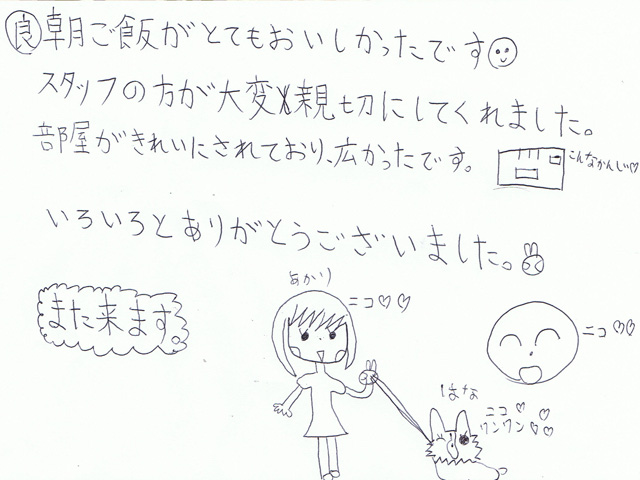 良 朝ご飯がとてもおいしかったです
スタッフの方が大変親切にしてくれました。
部屋がきれいにされており、広かったです。
こんなかんじ♡
いろいろとありがとうございました。
また来ます。
あかり
ニコ♡♡
ニコ♡♡
はな
ニコ♡♡
ワンワン♡♡